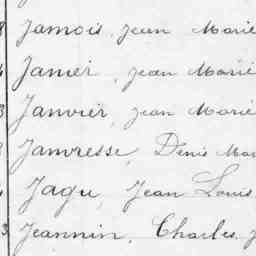 Jamois, Jean Marie
Janier, Jean Marie
Janvier, Jean Marie
Jamresse, Denis
Jagu, Jean Louis
Jeannin, Charles, J